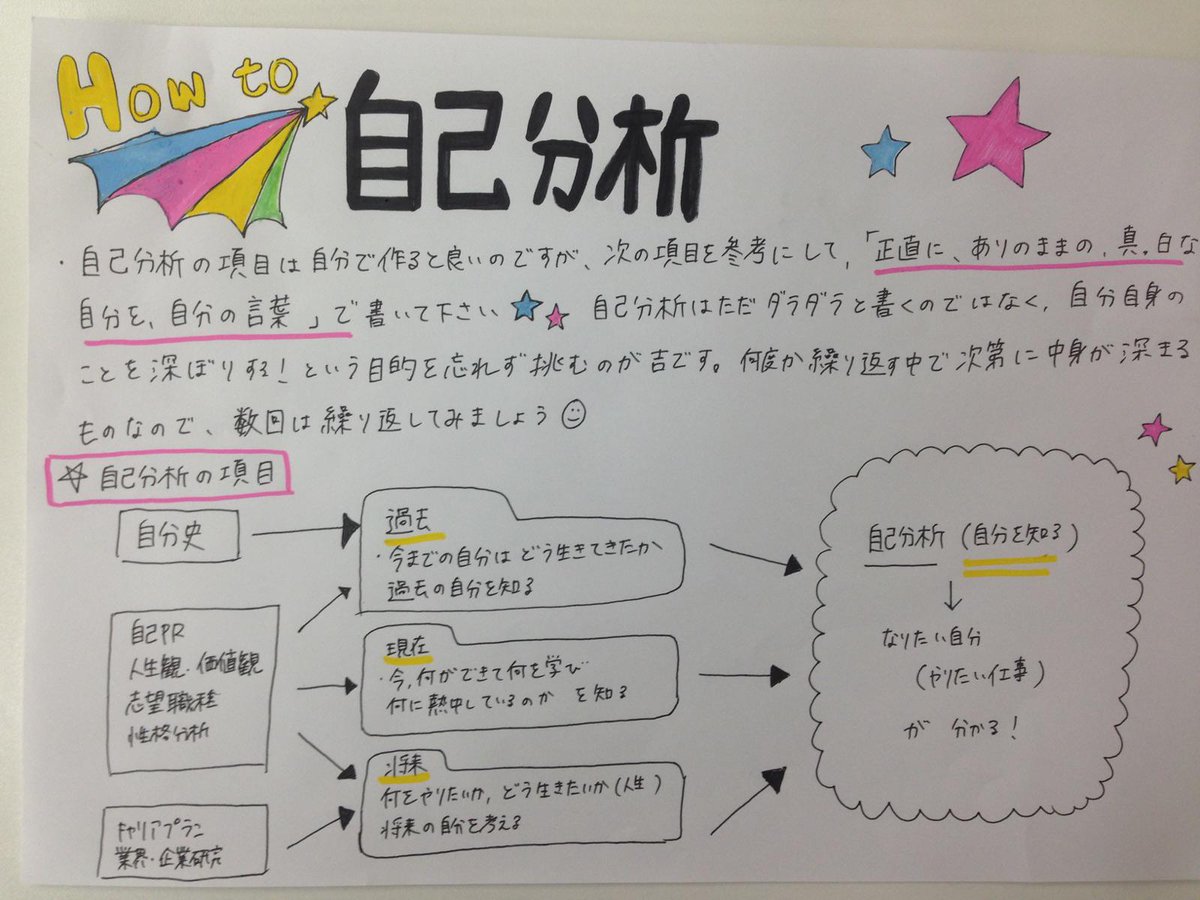 How to
自己分析
・自己分析の項目は自分で作ると良いのですが、次の項目を参考にして、「正直に、ありのままの、真っ白な
自分を、自分の言葉」で書いて下さい 自己分析はただダラダラと書くのではなく、自分自身の
ことを深ぼりする!という目的を忘れず挑むのが吉です。何度か繰り返す中で次第に中身が深まる
ものなので、数回は繰り返してみましょう
☆自己分析の項目
自分史
過去
・今までの自分はどう生きてきたか
過去の自分を知る
自己PR
人生観・価値観
志望職種
性格分析
現在
・今,何ができて何を学び
何に熱中しているのか を知る
キャリアプラン
業界・企業研究
将来
何をやりたいか,どう生きたいか(人生)
将来の自分を考える
自己分析(自分を知る)
↓
なりたい自分
(やりたい仕事)
が 分かる!